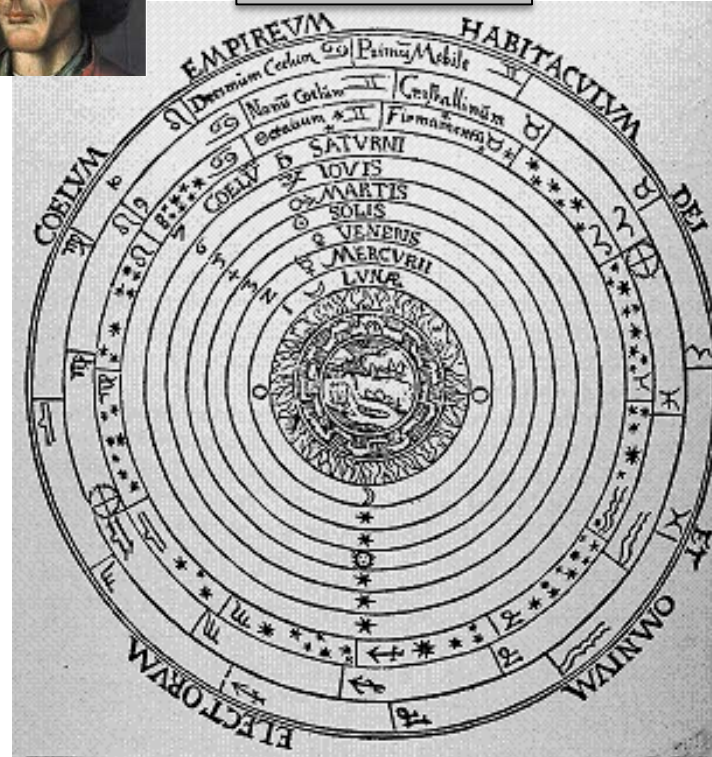 COELVM EMPIREVM HABITACVLVM DEI ET OMNIVM ELECTORVM
Decimum Coelum Primū Mobile
Nonū Coelum Cristallinum
Octauum Firmamentū
COELV̄
SATVRNI
IOVIS
MARTIS
SOLIS
VENERIS
MERCVRII
LVNÆ
7
6
5
4
3
2
1